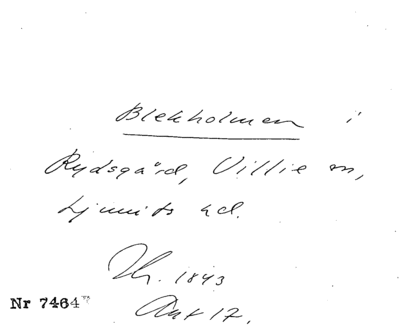 Blekholmen i
Rydsgård, Villie sn,
Ljunits hd.
Th. 1843
Ant 17.
Nr 7464